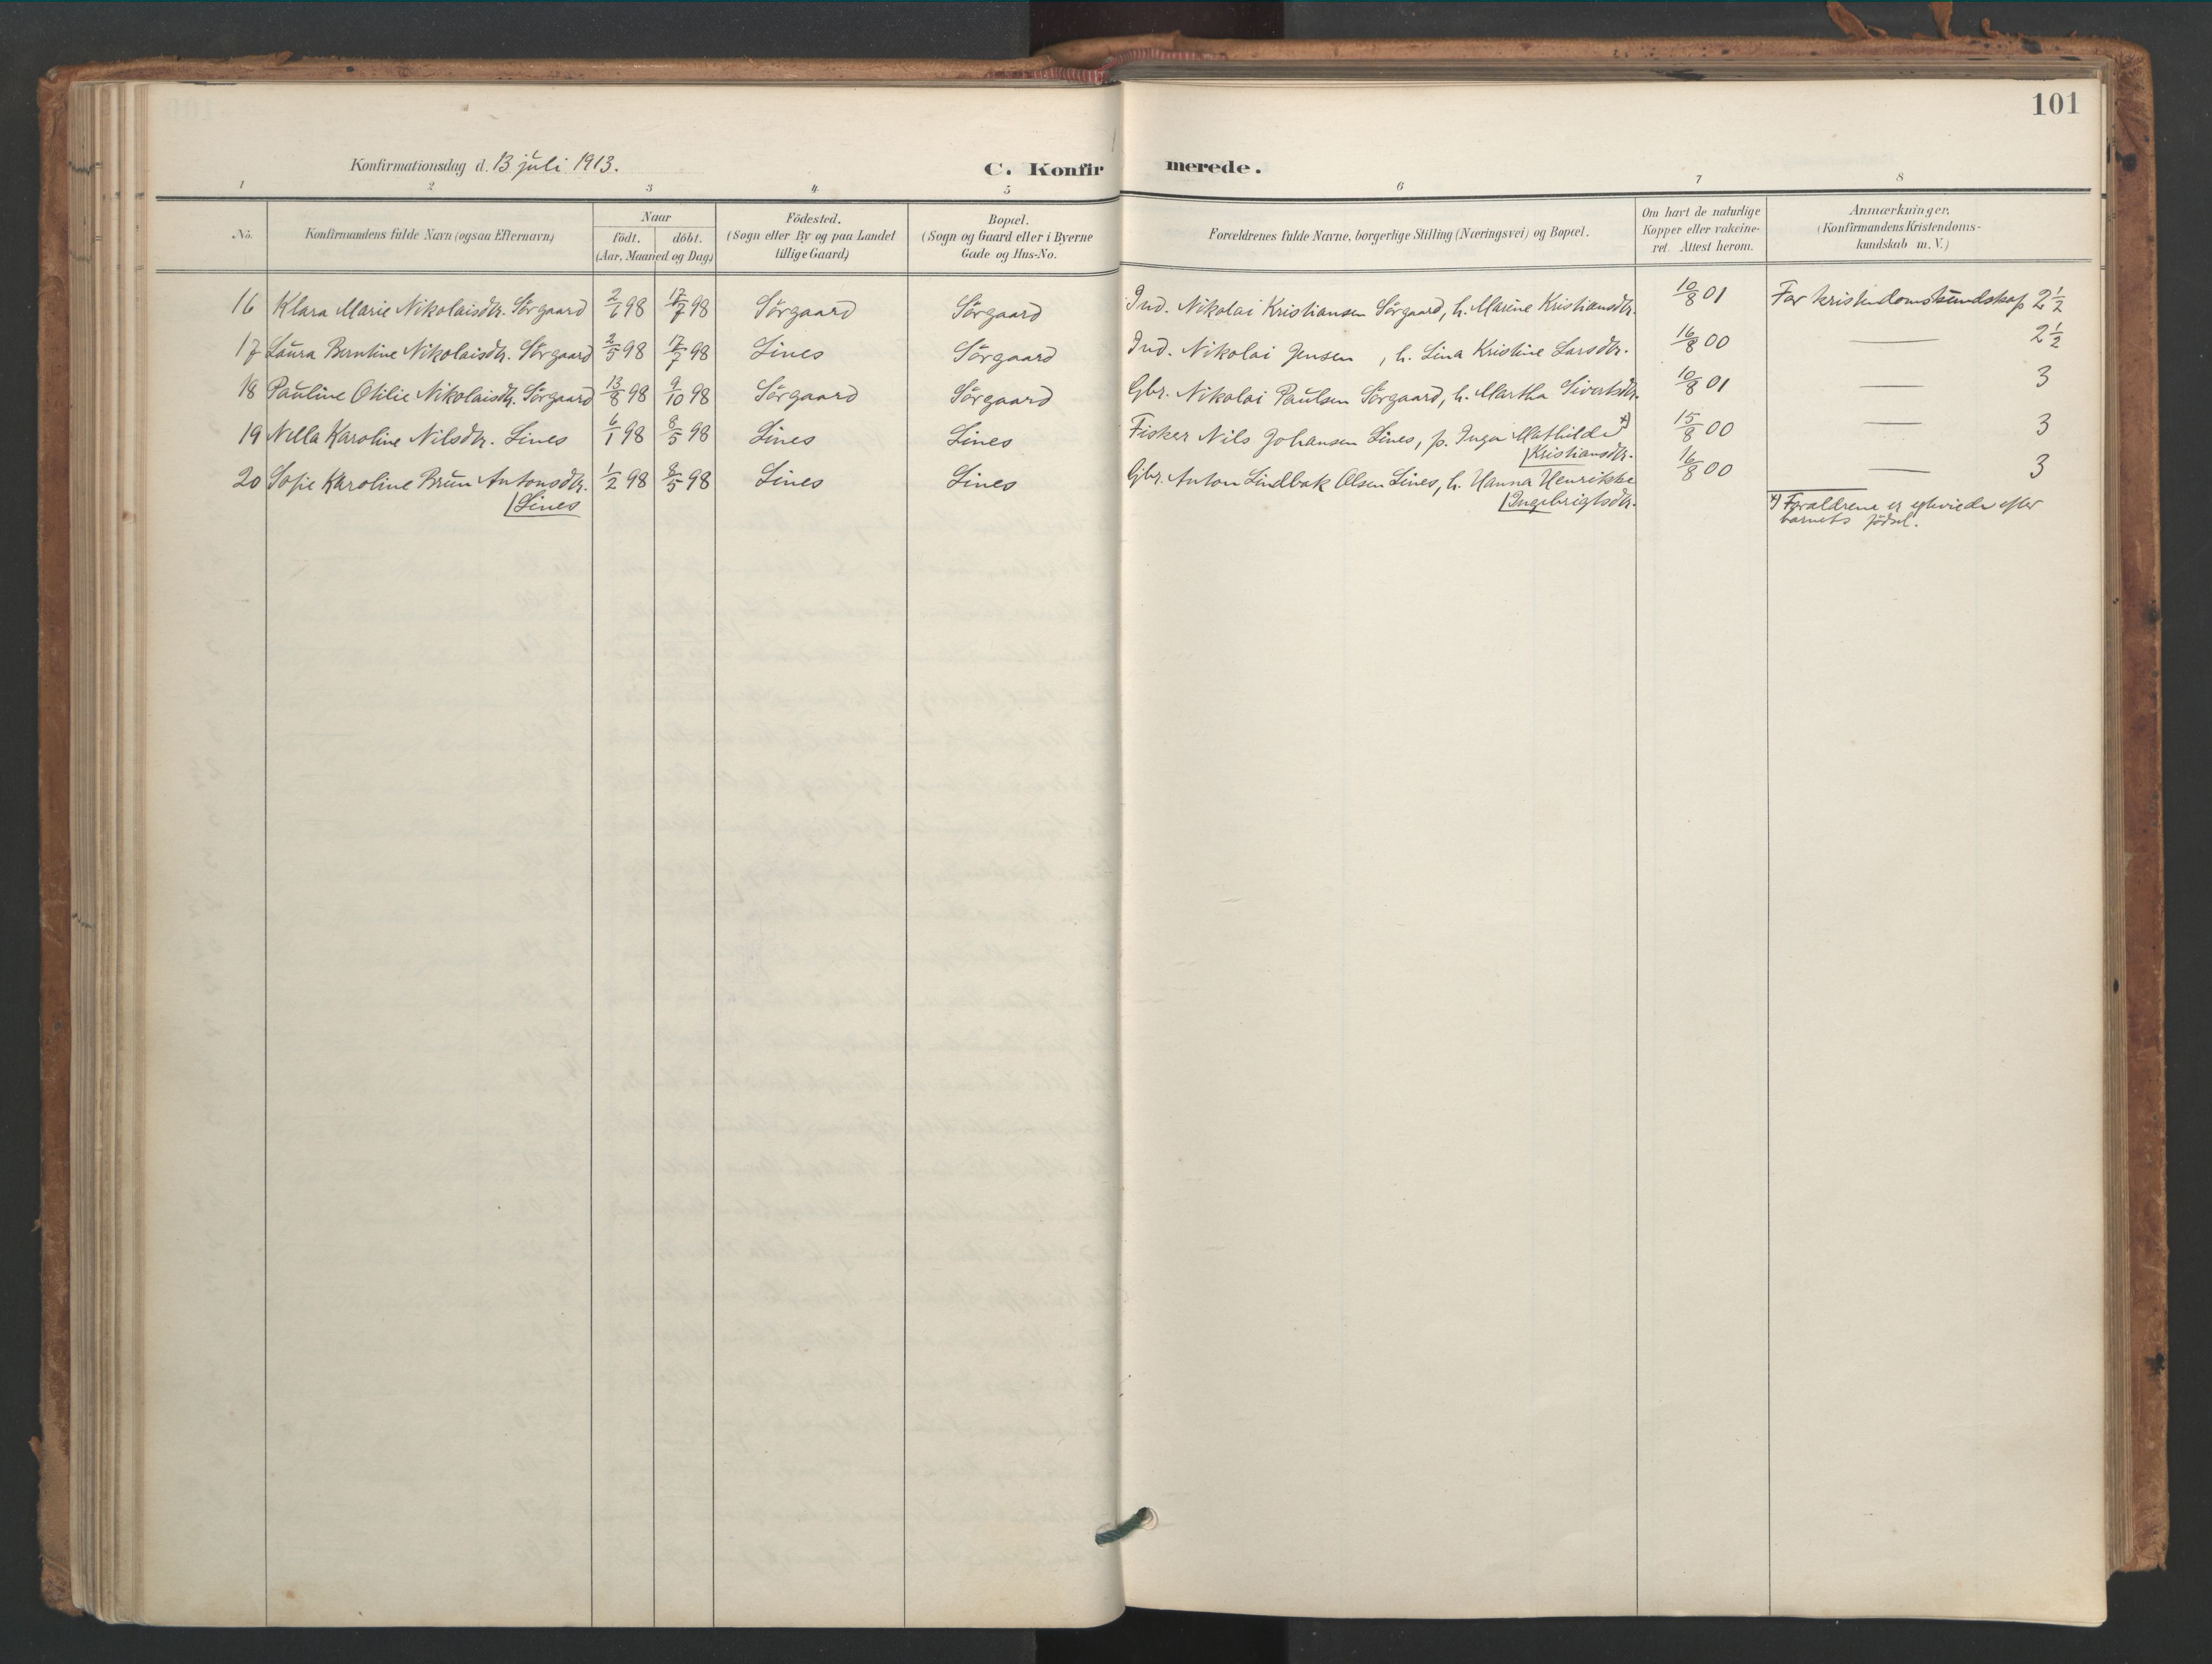 101
Konfirmationsdag d. 13 juli 1913.
C. Konfirmerede.
1 2 3 4 5 6 7 8
No.
Konfirmandens fulde Navn (ogsaa Efternavn)
Naar
födt. döbt.
(Aar, Maaned og Dag)
Födested.
(Sogn eller By og paa Landet
tillige Gaard)
Bopæl.
(Sogn og Gaard eller i Byerne
Gade og Hus-No.
Forældrenes fulde Navne, borgerlige Stilling (Næringsvei) og Bopæl.
Om havt de naturlige
Kopper eller vakcine-
ret. Attest herom.
Anmærkninger.
(Konfirmandens Kristendoms-
kundskab m. V.)
16 Klara Marie Nikolaisdtr. Sörgaard 2/7 98 17/7 98 Sörgaard Sörgaard Ind. Nikolai Kristiansen Sörgaard, h. Marine Kristiansdtr. 10/8 01 For kristendomskundskap 2 1/2
17 Laura Berntine Nikolaisdtr. Sörgaard 2/5 98 17/7 98 Lines Sörgaard Ind. Nikolai Jensen , h. Lina Kristine Larsdtr. 16/8 00 — 2 1/2
18 Pauline Otilie Nikolaisdtr. Sörgaard 13/8 98 9/10 98 Sörgaard Sörgaard Gbr. Nikolai Paulsen Sörgaard, h. Martha Sivertsdtr. 10/8 01 — 3
19 Nella Karoline Nilsdtr. Lines 6/1 98 8/5 98 Lines Lines Fisker Nils Johansen Lines, p. Inga Mathilde x) 15/8 00 — 3
Kristiansdtr.
20 Sofie Karoline Brun Antonsdtr. 1/2 98 8/5 98 Lines Lines Gbr. Anton Lindbak Olsen Lines, h. Hanna Henrikke 16/8 00 — 3
Lines
Ingebrigtsdtr.
x) Forældrene er egteviede efter
barnets födsel.